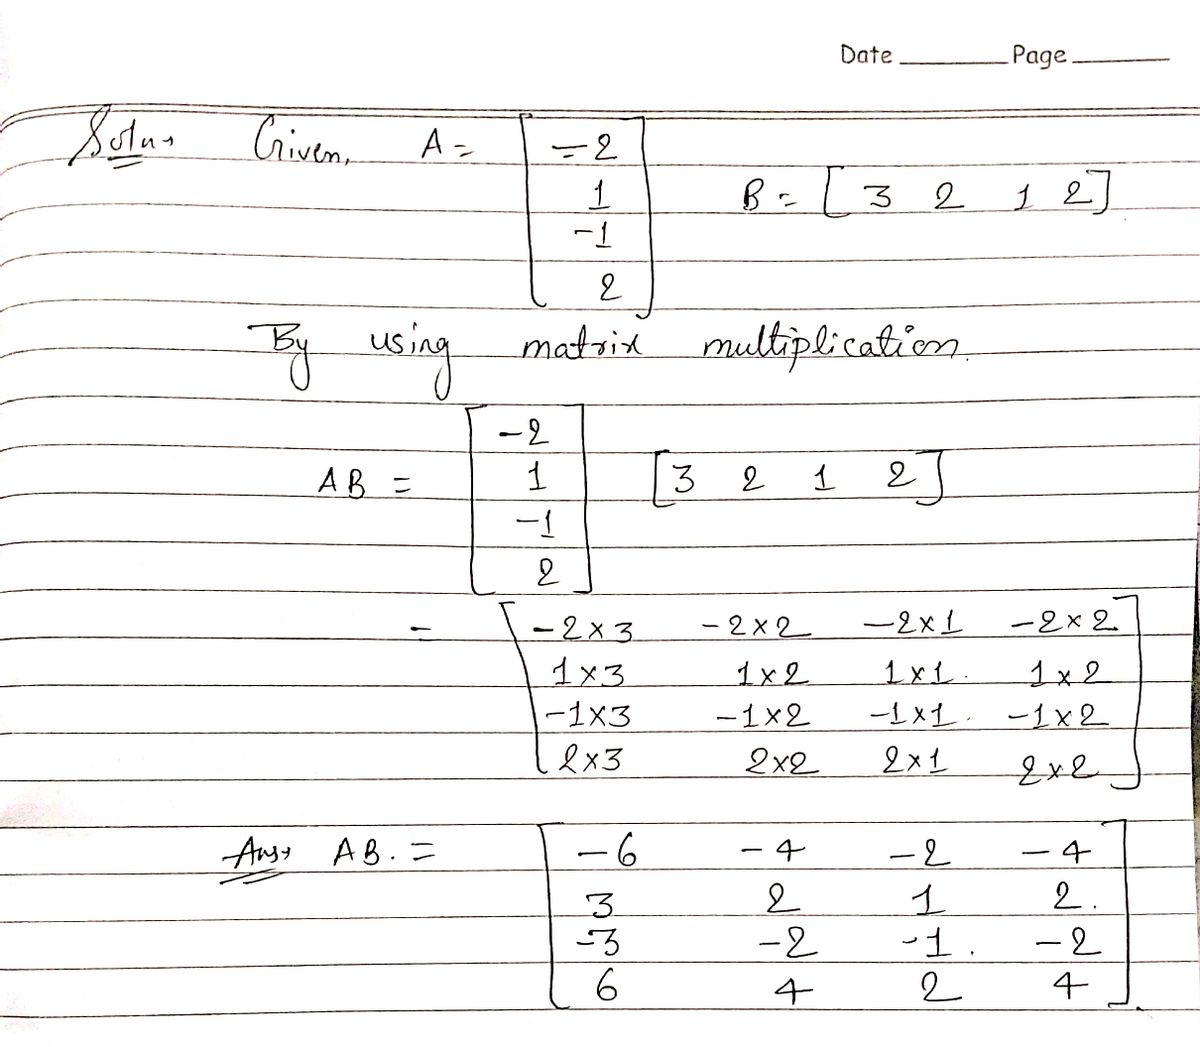 Date Page
Soln→ Given, A = [-2 1 -1 2] B = [3 2 1 2]
By using matrix multiplication.
AB = [-2 1 -1 2] [3 2 1 2]
= [-2×3 -2×2 -2×1 -2×2
1×3 1×2 1×1. 1×2
-1×3 -1×2 -1×1. -1×2
2×3 2×2 2×1 2×2]
Ans→ AB. = [-6 -4 -2 -4
3 2 1 2.
-3 -2 -1. -2
6 4 2 4].